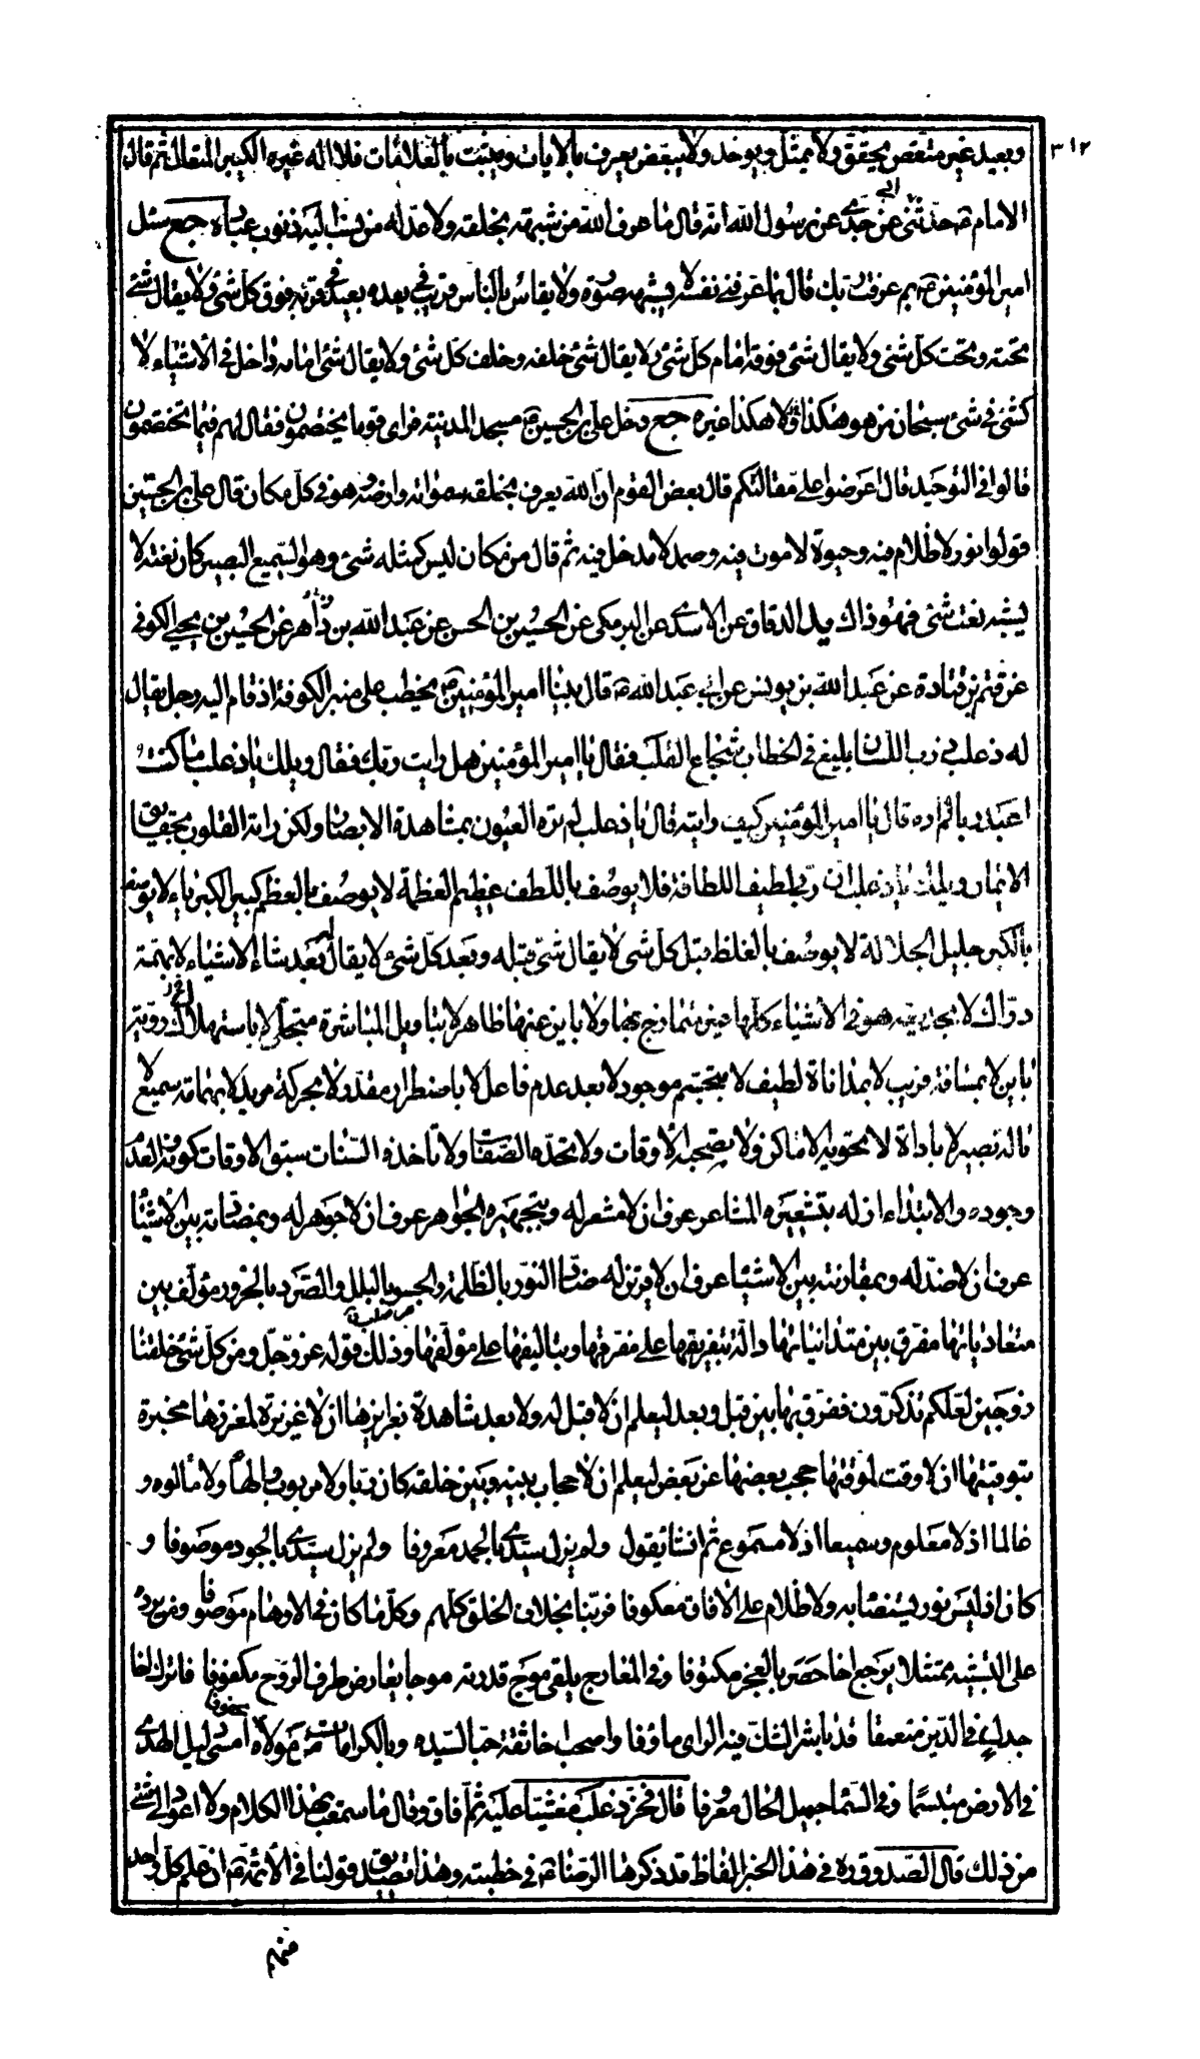 ٣١٢
وبعيد غير متقص يحقق ولا يمثل ويوحد ولا يبعض يعرف بالايات ويثبت بالعلامات فلا اله غيره الكبير المتعال ثم قال
الامام ع حدثني ابي عن جدي عن رسول الله انه قال ما عرف الله من شبهه بخلقه ولا عدله من نسب اليه ذنوب عباده جع سئل
امير المؤمنين ع بم عرفت ربك قال بما عرفني نفسه لا يشبهه صورة ولا يقاس بالناس قريب في بعده بعيد في قربه فوق كل شئ ولا يقال شئ
تحته وتحت كل شئ ولا يقال شئ فوقه امام كل شئ ولا يقال شئ خلفه وخلف كل شئ ولا يقال شئ امامه داخل في الاشياء لا
كشئ في شئ سبحان من هو هكذا ولا هكذا غيره جع دخل علي بن الحسين ع مسجد المدينة فراى قوما يختصمون فقال لهم فيما تختصمون
قالوا في التوحيد قال اعرضوا علي مقالتكم قال بعض القوم ان الله يعرف بخلقه سمواته وارضه وهو في كل مكان قال علي بن الحسين
قولوا نور لا ظلام فيه وحيوة لا موت فيه وصمد لا مدخل فيه ثم قال من كان ليس كمثله شئ وهو السميع البصير كان نعته لا
يشبه نعت شئ فهو ذاك يد الدقاق عن الاسدي عن البرمكي عن الحسين بن الحسن عن عبد الله بن داهر عن الحسين بن يحيى الكوفي
عن قثم بن قتادة عن عبد الله بن يونس عن ابي عبد الله ع قال بينا امير المؤمنين ع يخطب على منبر الكوفة اذ قام اليه رجل يقال
له ذعلب ذرب اللسان بليغ في الخطاب شجاع القلب فقال يا امير المؤمنين هل رايت ربك فقال ويلك يا ذعلب ما كنت
اعبد ربا لم اره قال يا امير المؤمنين كيف رايته قال يا ذعلب لم تره العيون بمشاهدة الابصار ولكن راته القلوب بحقايق
الايمان ويلك يا ذعلب ان ربي لطيف اللطافة فلا يوصف باللطف عظيم العظمة لا يوصف بالعظم كبير الكبرياء لا يوصف
بالكبر جليل الجلالة لا يوصف بالغلظ قبل كل شئ لا يقال شئ قبله وبعد كل شئ لا يقال له بعد شاء الاشياء لا بهمة
دراك لا بخديعة هو في الاشياء كلها غير متمازج بها ولا باين عنها ظاهر لا بتاويل المباشرة متجلي لا باستهلال رؤية
باين لا بمسافة قريب لا بمداناة لطيف لا بتجسم موجود لا بعد عدم فاعل لا باضطرار مقدر لا بحركة مريد لا بهمامة سميع لا
بالة بصير لا باداة لا تحويه الاماكن ولا تصحبه الاوقات ولا تحده الصفات ولا تاخذه السنات سبق الاوقات كونه والعدم
وجوده والابتداء ازله بتشعيره المشاعر عرف ان لا مشعر له وبتجهيره الجواهر عرف ان لا جوهر له وبمضادته بين الاشياء
عرف ان لا ضد له وبمقارنته بين الاشياء عرف ان لا قرين له ضاد النور بالظلمة والجسو بالبلل والصرد بالحرور مؤلف بين
متعادياتها مفرق بين متدانياتها دالة بتفريقها على مفرقها وبتاليفها على مؤلفها وذلك قوله عز وجل ومن كل شئ خلقنا
زوجين لعلكم تذكرون ففرق بها بين قبل وبعد ليعلم ان لا قبل له ولا بعد شاهدة بغرايزها ان لا غريزة لمغرزها مخبرة
بتوقيتها ان لا وقت لموقتها حجب بعضها عن بعض ليعلم ان لا حجاب بينه وبين خلقه كان ربا ولا مربوب والها ولا مالوه و
عالما اذ لا معلوم وسميعا اذ لا مسموع ثم انشا يقول ولم يزل سيدي بالحمد معروفا ولم يزل سيدي بالجود موصوفا و
كان اذ ليس نور يستضاء به ولا ظلام على الافاق معكوفا فربنا بخلاف الخلق كلهم وكل ما كان في الاوهام موصوفا ومن يرده
على التشبيه ممتثلا يرجع اخا حصر بالعجز مكتوفا وفي المعارج يلقى موج قدرته موجا يعارض طرف الروح مكفوفا فاترك اخا
جدل في الدين متعمقا قد باشر الشك فيه الراي ماوفا واصحب اخا ثقة حبا لسيده وبالكرامات من مولاه محفوفا امسى دليل الهدى
في الارض مبتسما وفي السما جميل الحال معروفا قال فخر ذعلب مغشيا عليه ثم افاق وقال ما سمعت بهذا الكلام ولا اعود الى شئ
من ذلك قال الصدوق ره في هذا الخبر الفاظ قد ذكرها الرضا ع في خطبته وهذا تصديق قولنا في الائمة ع ان علم كل واحد
منهم